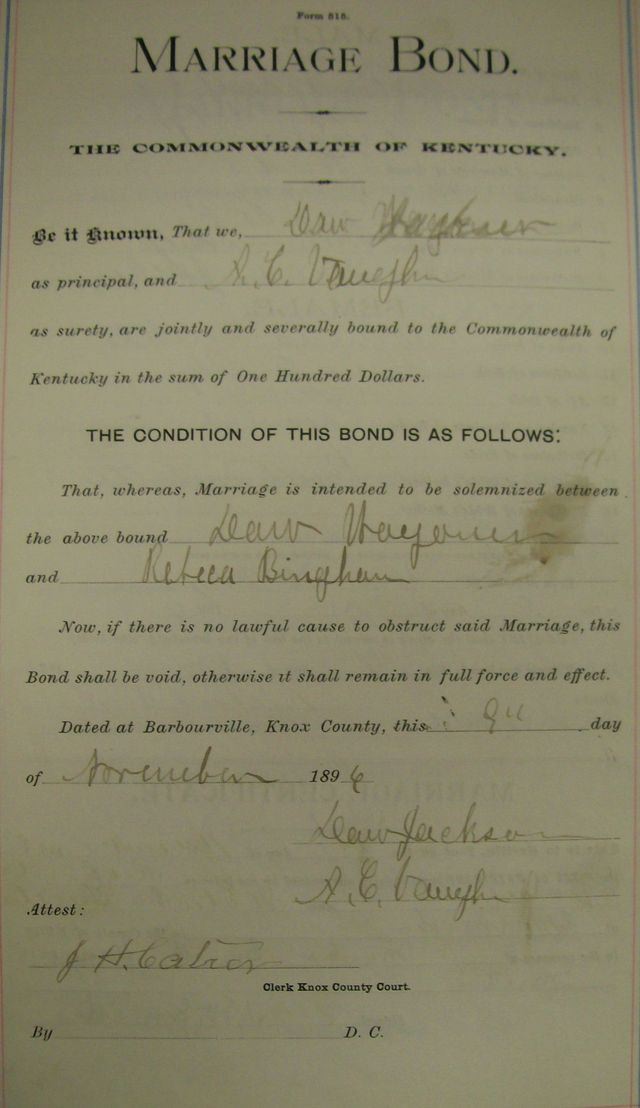 Form 818.
MARRIAGE BOND.
THE COMMONWEALTH OF KENTUCKY.
Be it Known, That we, Daw
as principal, and A. C. Vaughn
as surety, are jointly and severally bound to the Commonwealth of
Kentucky in the sum of One Hundred Dollars.
THE CONDITION OF THIS BOND IS AS FOLLOWS:
That, whereas, Marriage is intended to be solemnized between
the above bound Daw
and Rebeca Bingham
Now, if there is no lawful cause to obstruct said Marriage, this
Bond shall be void, otherwise it shall remain in full force and effect.
Dated at Barbourville, Knox County, this 9" day
of November 1896
Daw Jackson
A. C. Vaughn
Attest:
J H. Catron
Clerk Knox County Court.
By D. C.